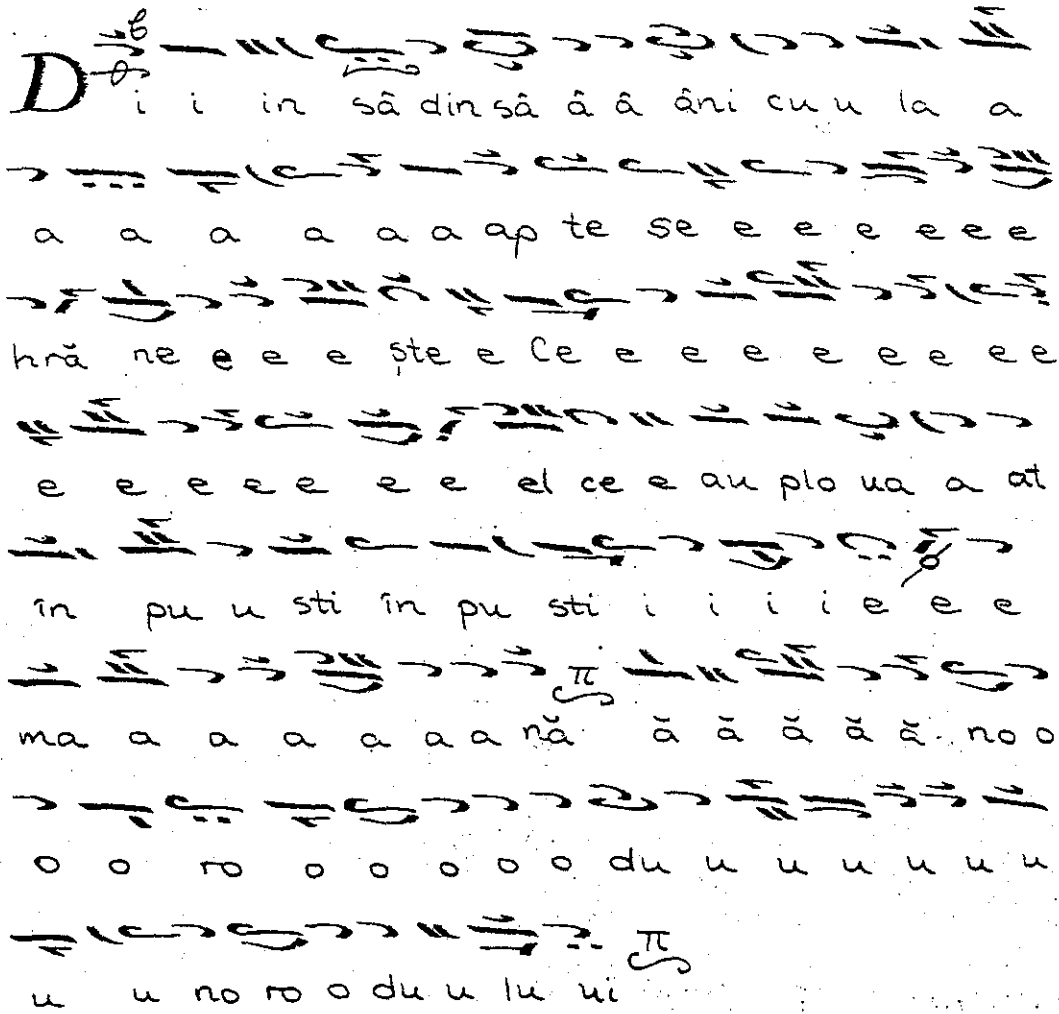 D i i in sâ din sâ â â âni cu u la a
a a a a a a ap te se e e e e e e
hră ne e e e ște e Ce e e e e e e e e
e e e e e e e el ce e au plo ua a at
în pu u sti în pu sti i i i i e e e
ma a a a a a a nă ă ă ă ă ă no o
o o ro o o o o o du u u u u u u
u u no ro o du u lu ui